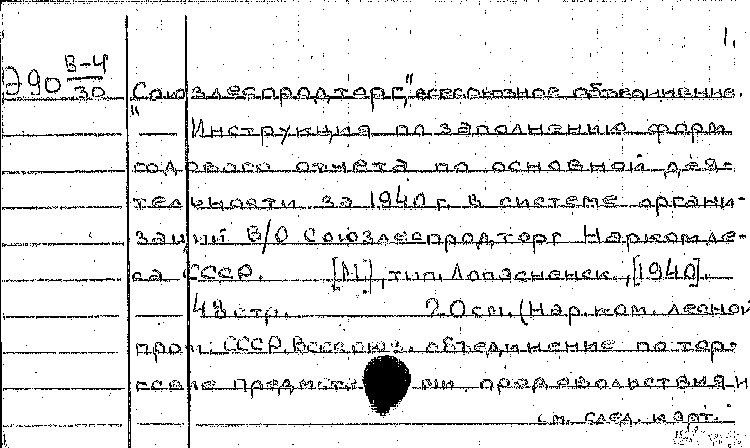 1.
Э90 В-4/30 "Союзлеспродторг", всесоюзное объединение.
— Инструкция по заполнению форм
годового отчета по основной дея-
тельности за 1940 г. в системе органи-
заций В/О Союзлеспродторг Наркомле-
са СССР. [М.], тип. Лопасненск., [1940].
48 стр. 20 см. (Нар. ком. лесной
пром. СССР. Всесоюз. объединение по тор-
говле предмета ми продовольствия и
см. след. карт.